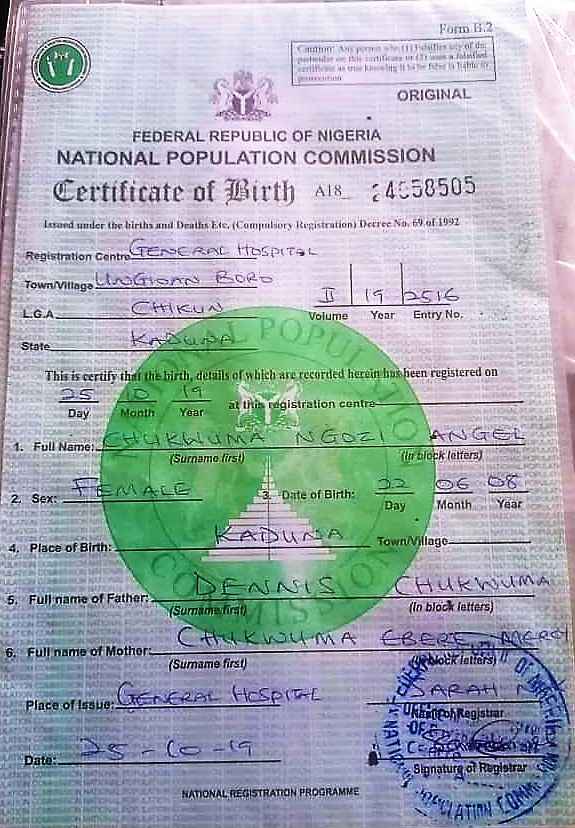 Form B.2
Caution: Any person who (1) falsifies any of the
particular on this certificate or (2) uses a falsified
certificate as true knowing it to be false is liable to
prosecution
ORIGINAL
FEDERAL REPUBLIC OF NIGERIA
NATIONAL POPULATION COMMISSION
Certificate of Birth A18_ 24658505
Issued under the births and Deaths Etc. (Compulsory Registration) Decree No. 69 of 1992
Registration Centre GENERAL HOSPITAL
Town/Village UNGWAN BORO
II 19 2516
L.G.A. CHIKUN Volume Year Entry No.
State KADUNA
This is certify that the birth, details of which are recorded herein has been registered on
25 10 19
Day Month Year at this registration centre
1. Full Name: CHUKWUMA NGOZI ANGEL
(Surname first) (in block letters)
2. Sex: FEMALE 3. Date of Birth: 22 06 08
Day Month Year
4. Place of Birth: KADUNA Town/Village
5. Full name of Father: DENNIS CHUKWUMA
(Surname first) (in block letters)
6. Full name of Mother: CHUKWUMA EBERE MERCY
(Surname first) (in block letters)
Place of Issue: GENERAL HOSPITAL SARAH N
Name of Registrar
Date: 25-10-19
Signature of Registrar
NATIONAL REGISTRATION PROGRAMME
NATIONAL POPULATION COMMISSION